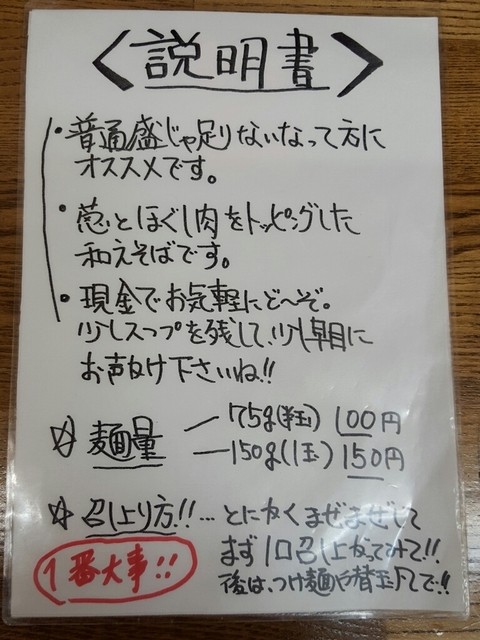 〈説明書〉
・普通盛じゃ足りないなって方に
オススメです。
・葱とほぐし肉をトッピングした
和えそばです。
・現金でお気軽にど〜ぞ。
少しスープを残して、少し早目に
お声がけ下さいね!!
☆麺量 75g(半玉) 100円
150g(1玉) 150円
☆召し上り方!!…とにかくまぜまぜして
まず1口召し上がってみて!!
1番大事!!
後は、つけ麺や替玉風で!!